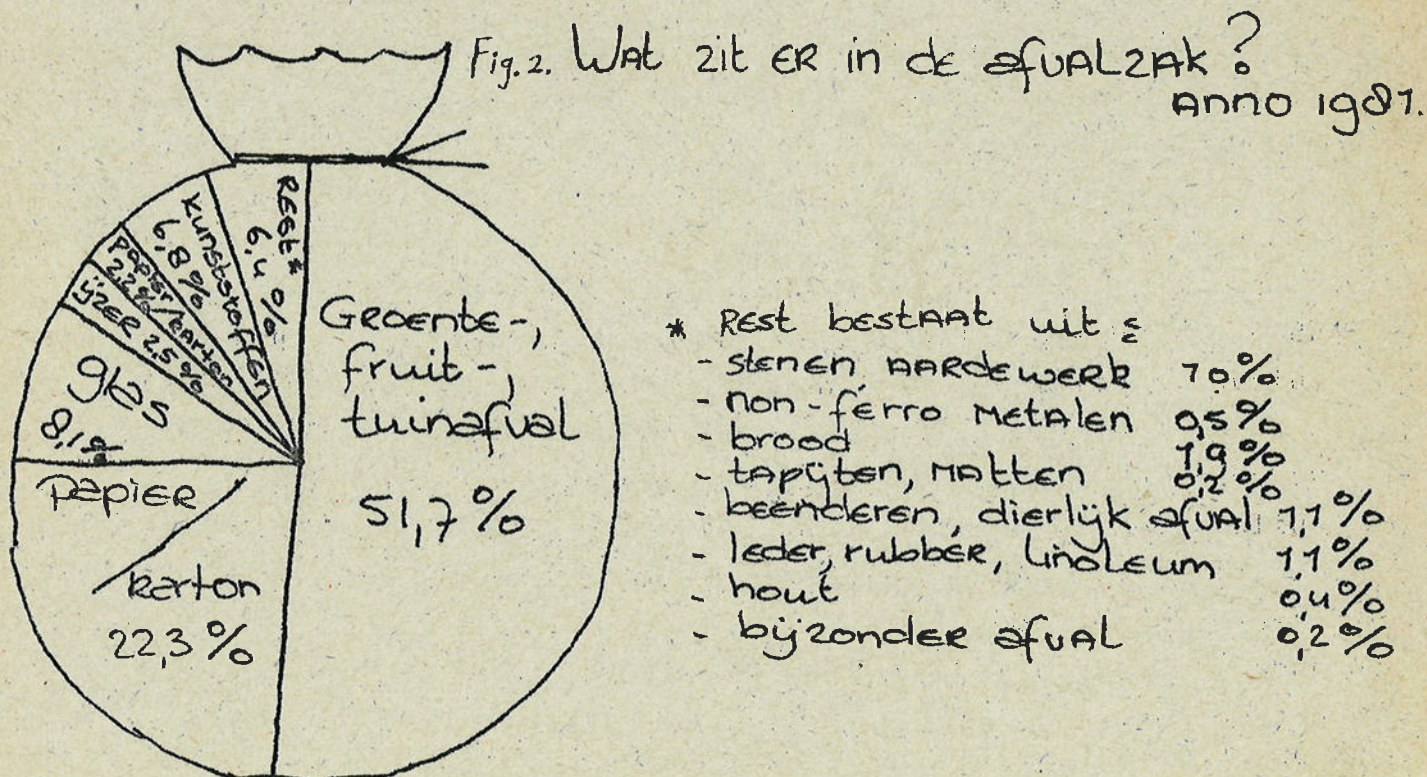 Fig. 2. Wat zit er in de afvalzak?
Anno 1981.
Rest*
6,4 %
Kunststoffen
6,8 %
papier/karton
2,2%
ijzer 2,5 %
glas
8,1 %
Papier
/karton
22,3 %
Groente-,
fruit-,
tuinafval
51,7 %
* Rest bestaat uit :
- stenen aardewerk 1,0%
- non-ferro metalen 0,5%
- brood 1,9%
- tapijten, matten 0,2%
- beenderen, dierlijk afval 1,1%
- leder, rubber, linoleum 1,1%
- hout 0,4%
- bijzonder afval 0,2%